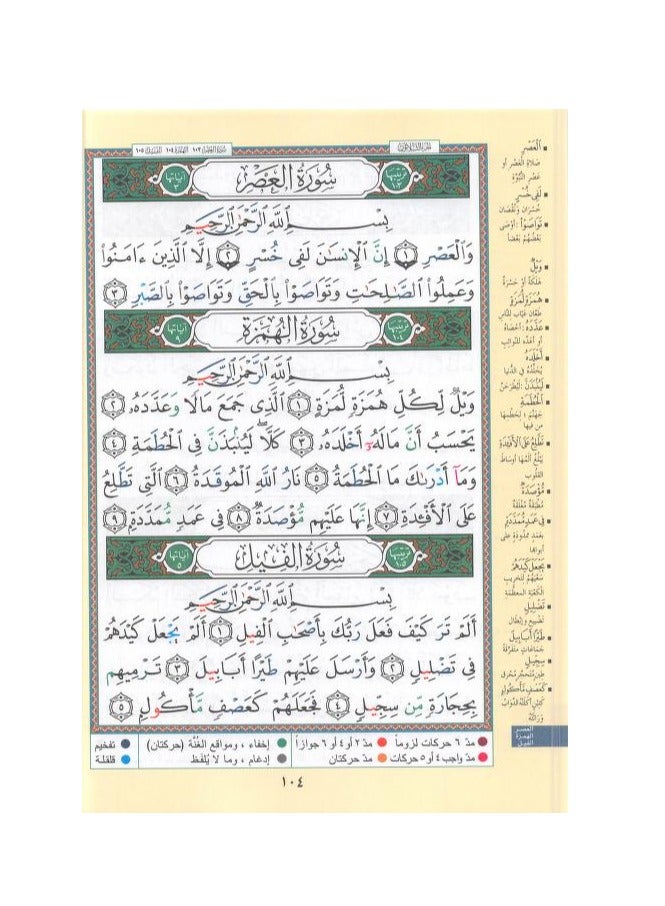 سُورَةُ العَصْر ١٠٣ الهُمَزَة ١٠٤ الفِيل ١٠٥
ترتيبها ١٠٣ سُورَةُ العَصْرِ آياتها ٣
بِسْمِ ٱللَّهِ ٱلرَّحْمَٰنِ ٱلرَّحِيمِ
وَٱلْعَصْرِ ١ إِنَّ ٱلْإِنسَٰنَ لَفِى خُسْرٍ ٢ إِلَّا ٱلَّذِينَ ءَامَنُوا۟
وَعَمِلُوا۟ ٱلصَّٰلِحَٰتِ وَتَوَاصَوْا۟ بِٱلْحَقِّ وَتَوَاصَوْا۟ بِٱلصَّبْرِ ٣
ترتيبها ١٠٤ سُورَةُ الهُمَزَةِ آياتها ٩
بِسْمِ ٱللَّهِ ٱلرَّحْمَٰنِ ٱلرَّحِيمِ
وَيْلٌ لِّكُلِّ هُمَزَةٍ لُّمَزَةٍ ١ ٱلَّذِى جَمَعَ مَالًا وَعَدَّدَهُۥ ٢
يَحْسَبُ أَنَّ مَالَهُۥٓ أَخْلَدَهُۥ ٣ كَلَّا ۖ لَيُنۢبَذَنَّ فِى ٱلْحُطَمَةِ ٤
وَمَآ أَدْرَىٰكَ مَا ٱلْحُطَمَةُ ٥ نَارُ ٱللَّهِ ٱلْمُوقَدَةُ ٦ ٱلَّتِى تَطَّلِعُ
عَلَى ٱلْأَفْـِٔدَةِ ٧ إِنَّهَا عَلَيْهِم مُّؤْصَدَةٌ ٨ فِى عَمَدٍ مُّمَدَّدَةٍۭ ٩
ترتيبها ١٠٥ سُورَةُ الفِيلِ آياتها ٥
بِسْمِ ٱللَّهِ ٱلرَّحْمَٰنِ ٱلرَّحِيمِ
أَلَمْ تَرَ كَيْفَ فَعَلَ رَبُّكَ بِأَصْحَٰبِ ٱلْفِيلِ ١ أَلَمْ يَجْعَلْ كَيْدَهُمْ
فِى تَضْلِيلٍ ٢ وَأَرْسَلَ عَلَيْهِمْ طَيْرًا أَبَابِيلَ ٣ تَرْمِيهِم
بِحِجَارَةٍ مِّن سِجِّيلٍ ٤ فَجَعَلَهُمْ كَعَصْفٍ مَّأْكُولٍۭ ٥
العَصْرِ
صلاةِ العَصْرِ أو
عَصْرِ النُّبُوَّةِ
لَفِي خُسْرٍ
خُسْرانٍ ونُقْصانٍ
تَوَاصَوْا: أوْصَى
بَعْضُهُمْ بَعْضاً
وَيْلٌ
هَلَكَةٌ أو حَسْرَةٌ
هُمَزَةٍ لُمَزَةٍ
طَعَّانٍ عَيَّابٍ للنَّاسِ
عَدَّدَهُ: أحْصَاهُ
أو أعَدَّهُ للنَّوائِبِ
أَخْلَدَهُ
يُخَلِّدُهُ في الدنيا
لَيُنْبَذَنَّ: لَيُطْرَحَنَّ
الحُطَمَةِ
تَطَّلِعُ عَلَى الأَفْئِدَةِ
يَبْلُغُ ألَمُها أوساطَ
القلوب
مُؤْصَدَةٌ
مُطْبَقَةٌ مُغْلَقَةٌ
فِي عَمَدٍ مُمَدَّدَةٍ
بعَمَدٍ ممدودة على
أبوابها
يَجْعَلْ كَيْدَهُمْ
سَعْيَهُمْ لتخريب
الكعبة المعظمة
تَضْلِيلٍ
تضييعٍ وإبطالٍ
طَيْراً أَبَابِيلَ
جماعاتٍ متفرقةً
سِجِّيلٍ
طينٍ متحجّرٍ مُحرَقٍ
كَعَصْفٍ مَأْكُولٍ
كتِبْنٍ أكلته الدوابُّ
وراثَتْهُ
العصر
الهمزة
الفيل
مدّ ٦ حركات لزوماً مدّ ٢ أو ٤ أو ٦ جوازاً إخفاء، ومواقع الغُنَّة (حركتان) تفخيم
مدّ واجب ٤ أو ٥ حركات مدّ حركتان إدغام، وما لا يُلفَظ قلقلة
١٠٤